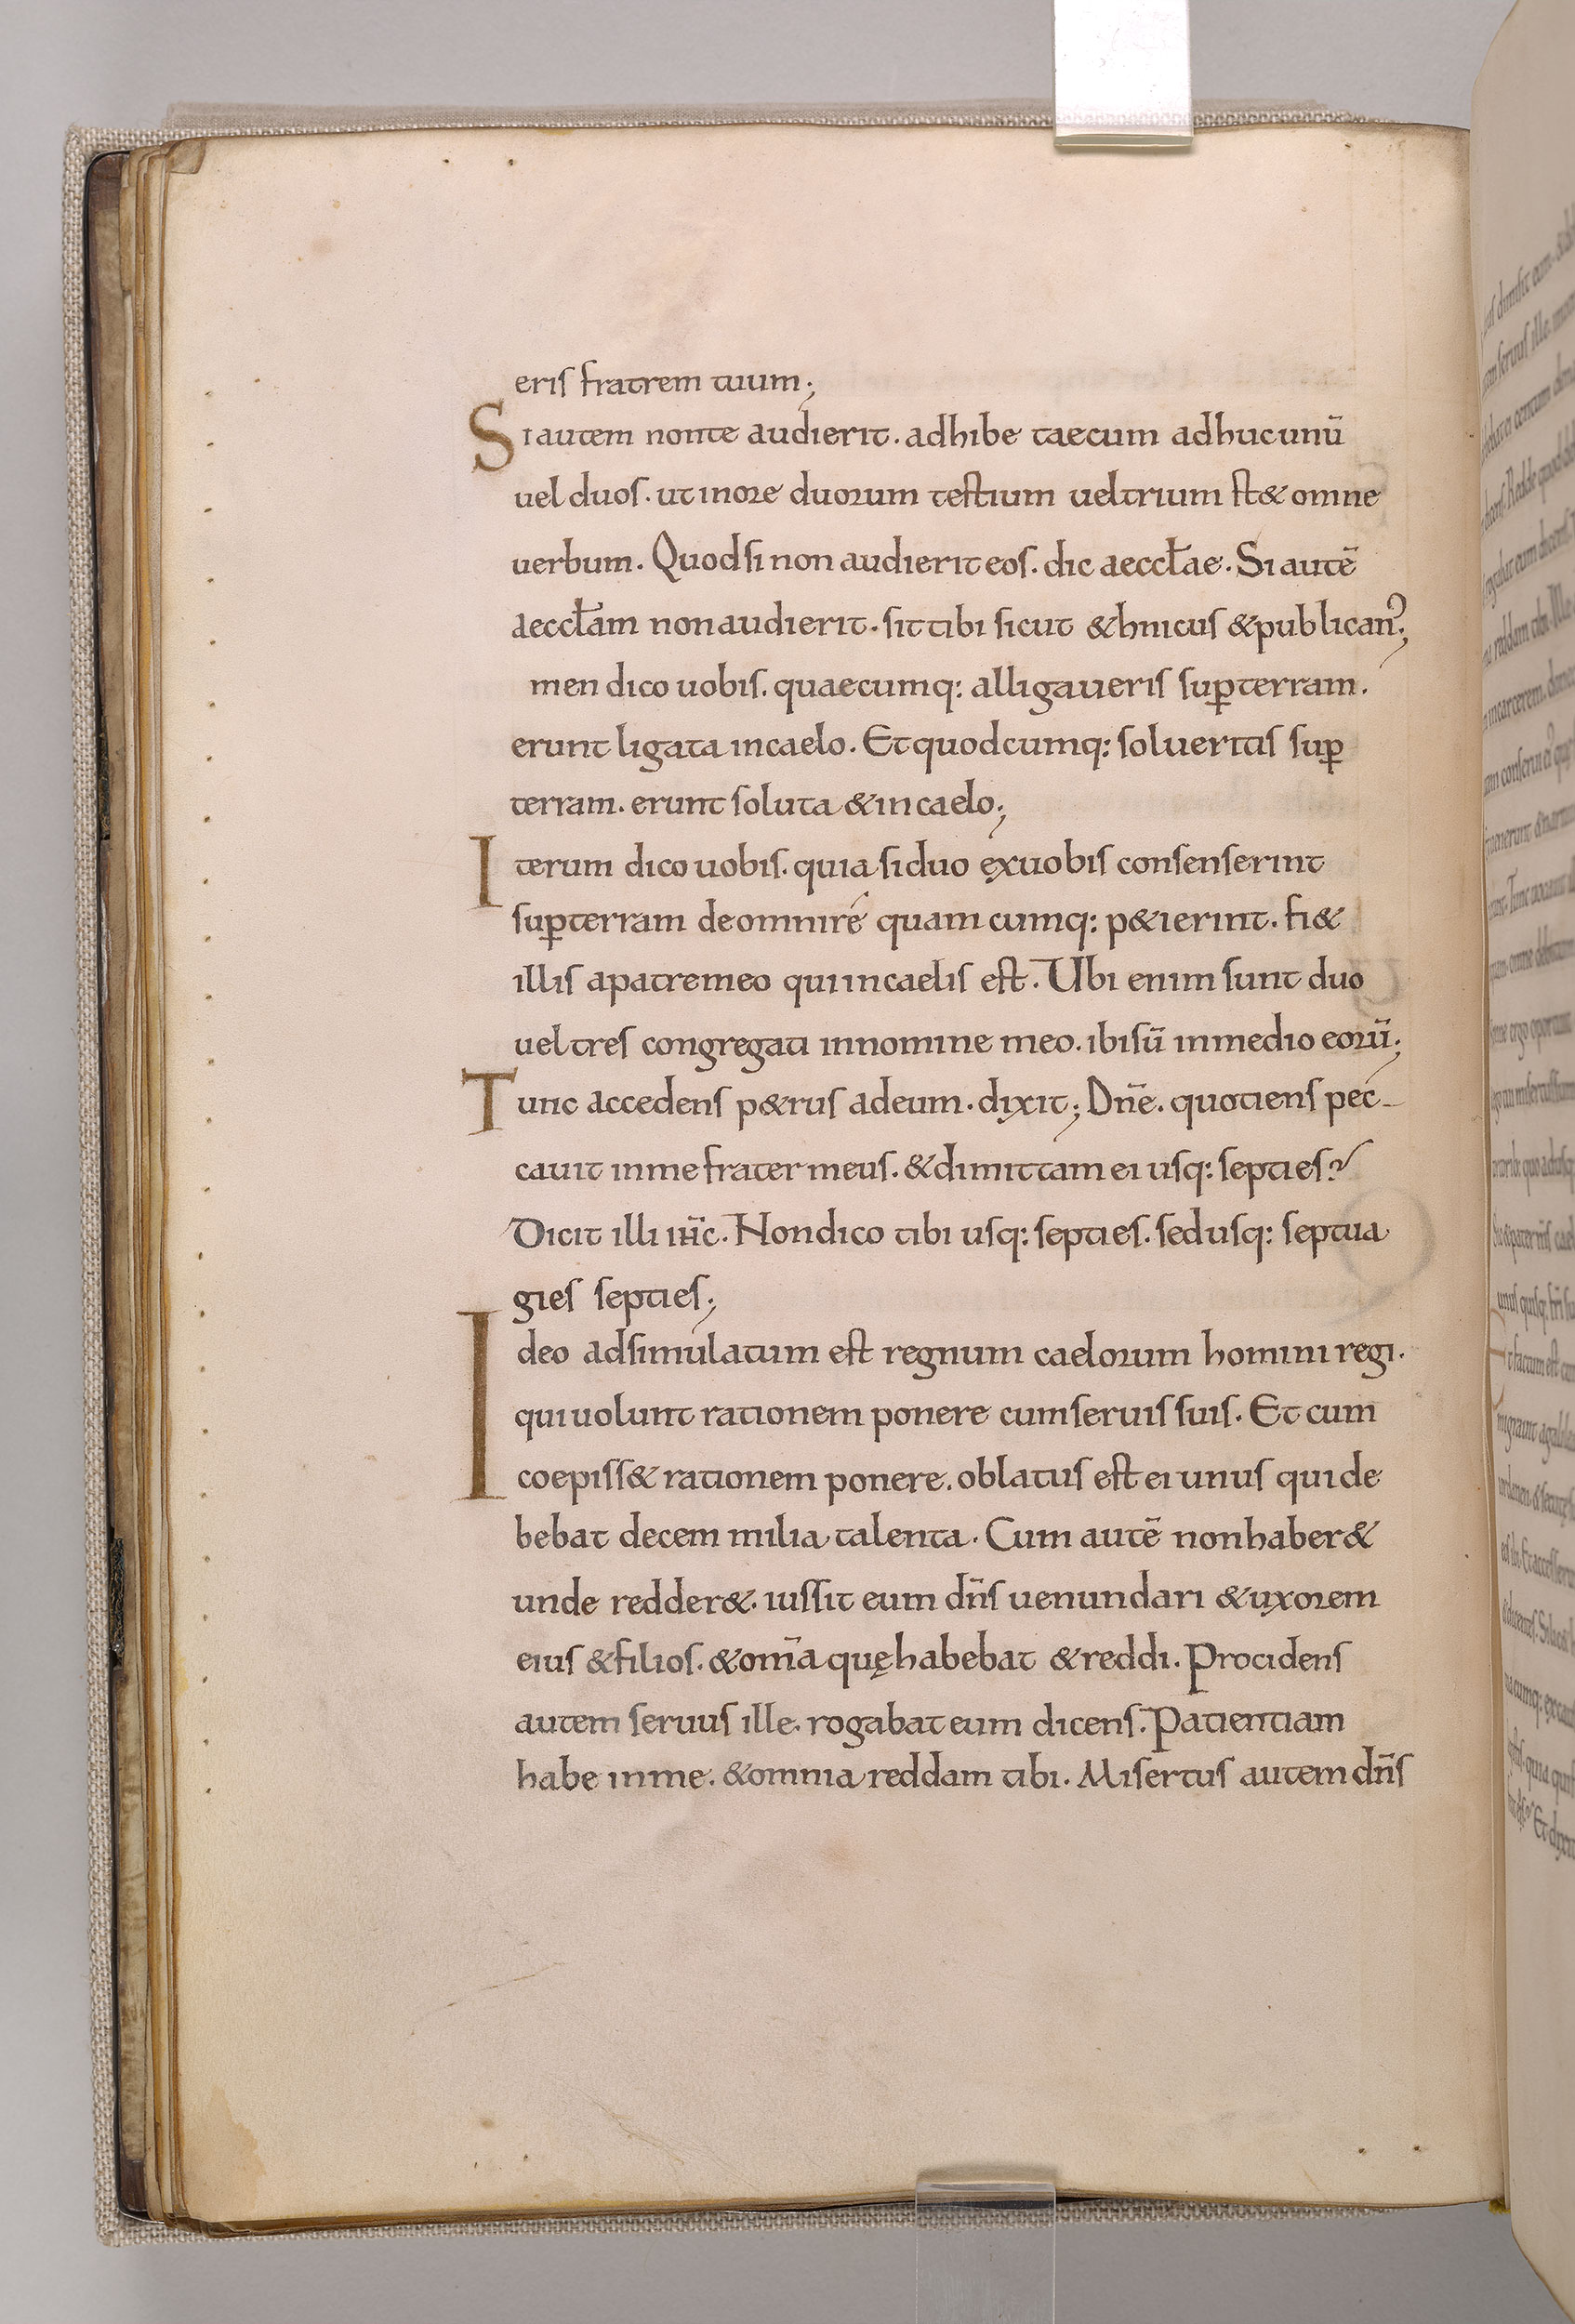 eris fratrem tuum;
Si autem non te audierit. adhibe taecum adhuc unū
uel duos. ut in ore duorum testium uel trium st& omne
uerbum. Quod si non audierit eos. dic aeccłae. Si autē
aeccłam non audierit. sit tibi sicut &hnicus & publican᾿;
men dico uobis. quaecumq: alligaueris suꝑ terram.
erunt ligata in caelo. Et quodcumq: soluertis suꝑ
terram. erunt soluta & in caelo;
Iterum dico uobis. quia si duo ex uobis consenserint
suꝑ terram de omni ré quam cumq: p&ierint. fi&
illis a patre meo qui in caelis est. Ubi enim sunt duo
uel tres congregati in nomine meo. ibi sū in medio eorū;
Tunc accedens p&rus ad eum. dixit; Dñe. quotiens pec-
cauit in me frater meus. & dimittam ei usq: septies?
Dicit illi ih̄c. Non dico tibi usq: septies. sed usq: septua
gies septies;
Ideo adsimulatum est regnum caelorum homini regi.
qui uolunt rationem ponere cum seruis suis. Et cum
coepiss& rationem ponere. oblatus est ei unus qui de
bebat decem milia talenta. Cum autē non haber&
unde redder&. iussit eum dn̄s uenundari & uxorem
eius & filios. & om̄a quę habebat & reddi. Procidens
autem seruus ille. rogabat eum dicens. Patientiam
habe in me. & omnia reddam tibi. Misertus autem dn̄s